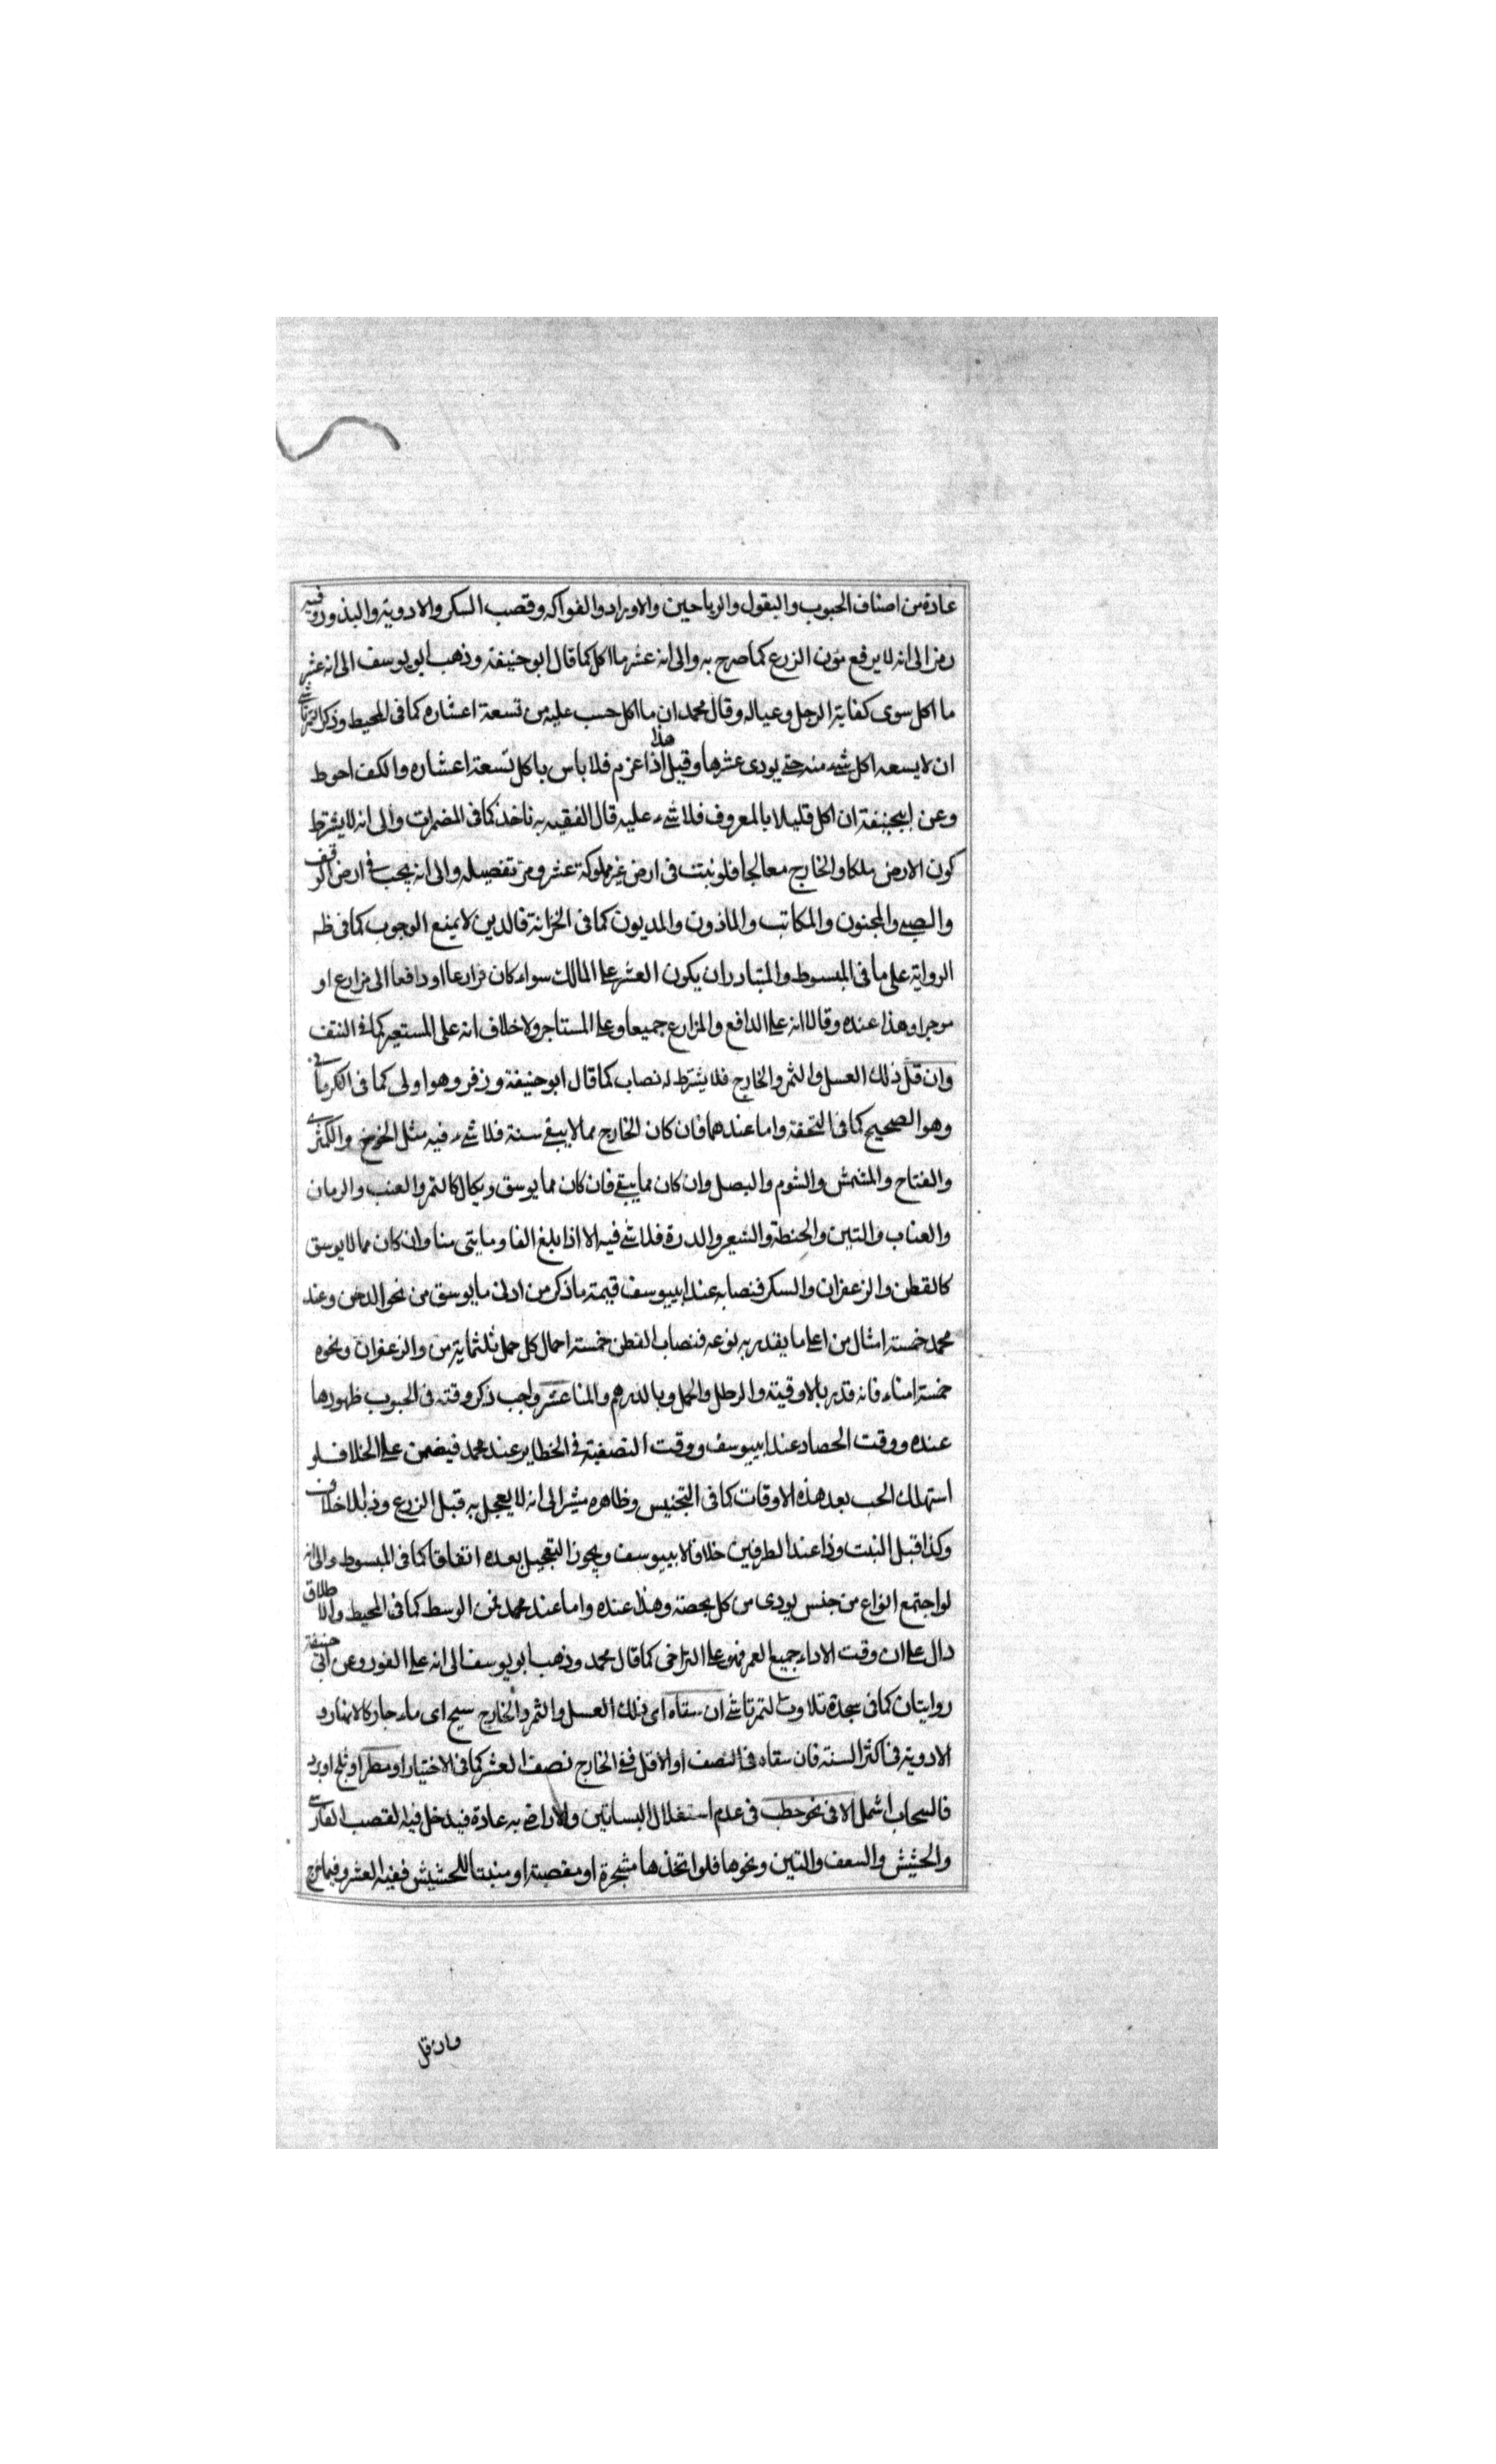 عادة من اصناف الحبوب والبقول والرياحين والاوراد والفواكه وقصب السكر والادوية والبذور وفيه
رمز الى انه لا يرفع مؤن الزرع كما صرح به والى انه عشر ما اكل كما قال ابو حنيفة وذهب ابو يوسف الى انه عشر
ما اكل سوى كفاية الرجل وعياله وقال محمد ان ما اكل حسب عليه من تسعة اعشاره كما فى المحيط وذكر التمرتاشى
ان لا يسعه اكل شىء منه حتى يودى عشرها وقيل هذا اذا عزم فلا باس باكل تسعة اعشاره والكف احوط
وعن ابيحنيفة ان اكل قليلا بالمعروف فلا شىء عليه قال الفقيه به ناخذ كما فى المضمرات والى انه لا يشترط
كون الارض ملكا والخارج معالجا فلو نبتت فى ارض غير مملوكة عشر ومر تفصيله والى انه يجب فى ارض الوقف
والصبى والمجنون والمكاتب والماذون والمديون كما فى الخزانة فالدين لا يمنع الوجوب كما فى ظه
الرواية على ما فى المبسوط والمتبادر ان يكون العشر على المالك سواء كان مزارعا او دافعا الى مزارع او
موجرا وهذا عنده وقالا انه على الدافع والمزارع جميعا وعلى المستاجر ولا خلاف انه على المستعير كما فى النتف
وان قل ذلك العسل والثمر والخارج فلا يشترط له نصاب كما قال ابو حنيفة وزفر وهو اولى كما فى الكرمانى
وهو الصحيح كما فى التحفة واما عندهما فان كان الخارج مما لا يبقى سنة فلا شىء فيه مثل الخوخ والكمثرى
والفتاح والمشمش والثوم والبصل وان كان مما يبقى فان كان مما يوسق ويكال كالتمر والعنب والرمان
والعناب والتين والحنطة والشعير والدرة فلا شى فيه الا اذا بلغ الفا ومايتى منا وان كان مما لا يوسق
كالقطن والزعفران والسكر فنصابه عند ابييوسف قيمته ما ذكر من ادنى ما يوسق من نحو الدخن وعند
محمد خمسة امثال من اعلى ما يقدر به نوعه فنصاب القطن خمسة احمال كل حمل ثلثماية من والزعفران ونحوه
خمسة امناء فانه قدر بالاوقية والرطل والحمل وبالدرهم والمنا عشر واجب ذكر وقته فى الحبوب ظهورها
عنده ووقت الحصاد عند ابييوسف ووقت التصفية فى الخطاير عند محمد فيضمن على الخلاف لو
استهلك الحب بعد هذه الاوقات كما فى التجنيس وظاهره مشير الى انه لا يعجل به قبل الزرع وذا بلا خلاف
وكذا قبل النبت وذا عند الطرفين خلافا لابييوسف ويجوز التعجيل بعده اتفاقا كما فى المبسوط والى انه
لو اجتمع انواع من جنس يودى من كل بحصته وهذا عنده واما عند محمد فمن الوسط كما فى المحيط والاطلاق
دال على ان وقت الاداء جميع العمر فهو على التراخى كما قال محمد وذهب ابو يوسف الى انه على الفور وعن ابى حنيفة
روايتان كما فى سجدة تلاوت التمرتاشى ان سقاه اى ذلك العسل والثمر والخارج سيح اى ماء جار كالانهار و
الادوية فى اكثر السنة فان سقاه فى النصف او الاقل ففى الخارج نصف العشر كما فى الاختيار او مطر او ثلج او برد
فالسحاب اشمل الا فى نحو حطب فى عدم استغلال البساتين والاراضى به عادة فيدخل فيه القصب الفارسى
والحشيش والسعف والتين ونحوها فلو اتخذها مشجرة او مقصبة او منبتا للحشيش ففيه العشر وفيما خرج
وان قل